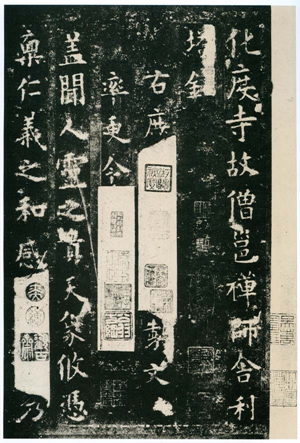 化度寺故僧邕禪師舍利
塔銘
右庶 製文
率更令
盖聞人靈之貴天象攸憑
稟仁義之和感 乃